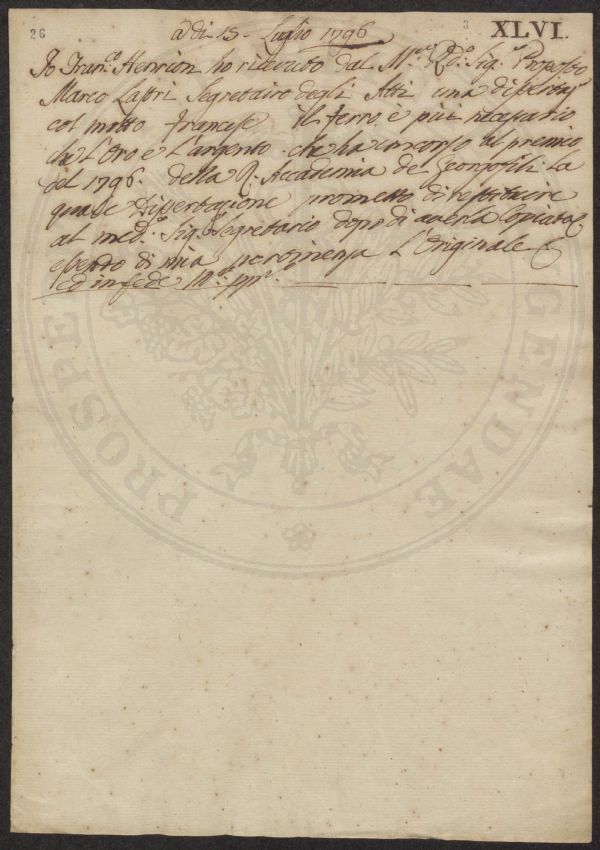 26
3
XLVI.
a di 13. Luglio 1796
Io Fran.co Henrion ho ricevuto dal M.to Rd.o Sig.r Proposto
Marco Lastri Segretairo degli Atti una dissertaz.
col motto Francese Il ferro è più necessario
che l'Oro e l'argento. che ha concorso al premio
del 1796. della R. Accademia de Georgofili. La
quale Dissertazione prometto di restituire
al med.o Sig.r Segretario dopo di averla Copiata
essendo di mia pertinenza L'Originale
ed in fede M.o pp.a
PROSPE
GENDAE